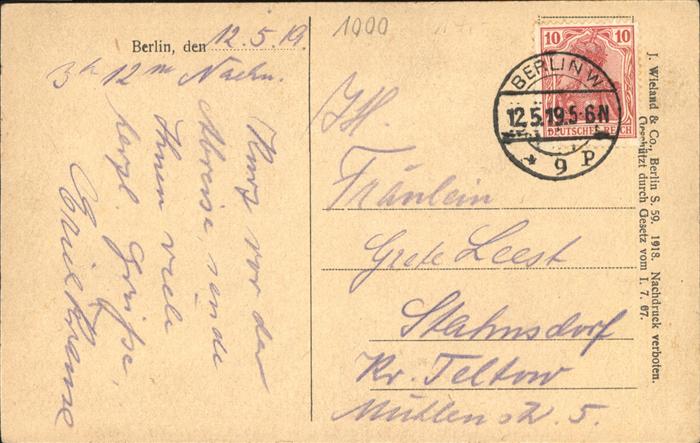 1000
Berlin, den 12.5.19.
3h 12m Nachm.
Kurz vor der
Abreise sende
Ihnen viele
herzl. Grüße,
Krause
10 10
DEUTSCHES REICH
BERLIN W
12.5.19.5-6N
* 9 P
Fräulein
Grete Leest
Stahnsdorf
Kr. Teltow
Mühlenstr. 5.
J. Wieland & Co., Berlin S. 59. 1918. Nachdruck verboten.
Geschützt durch Gesetz vom 1. 7. 07.